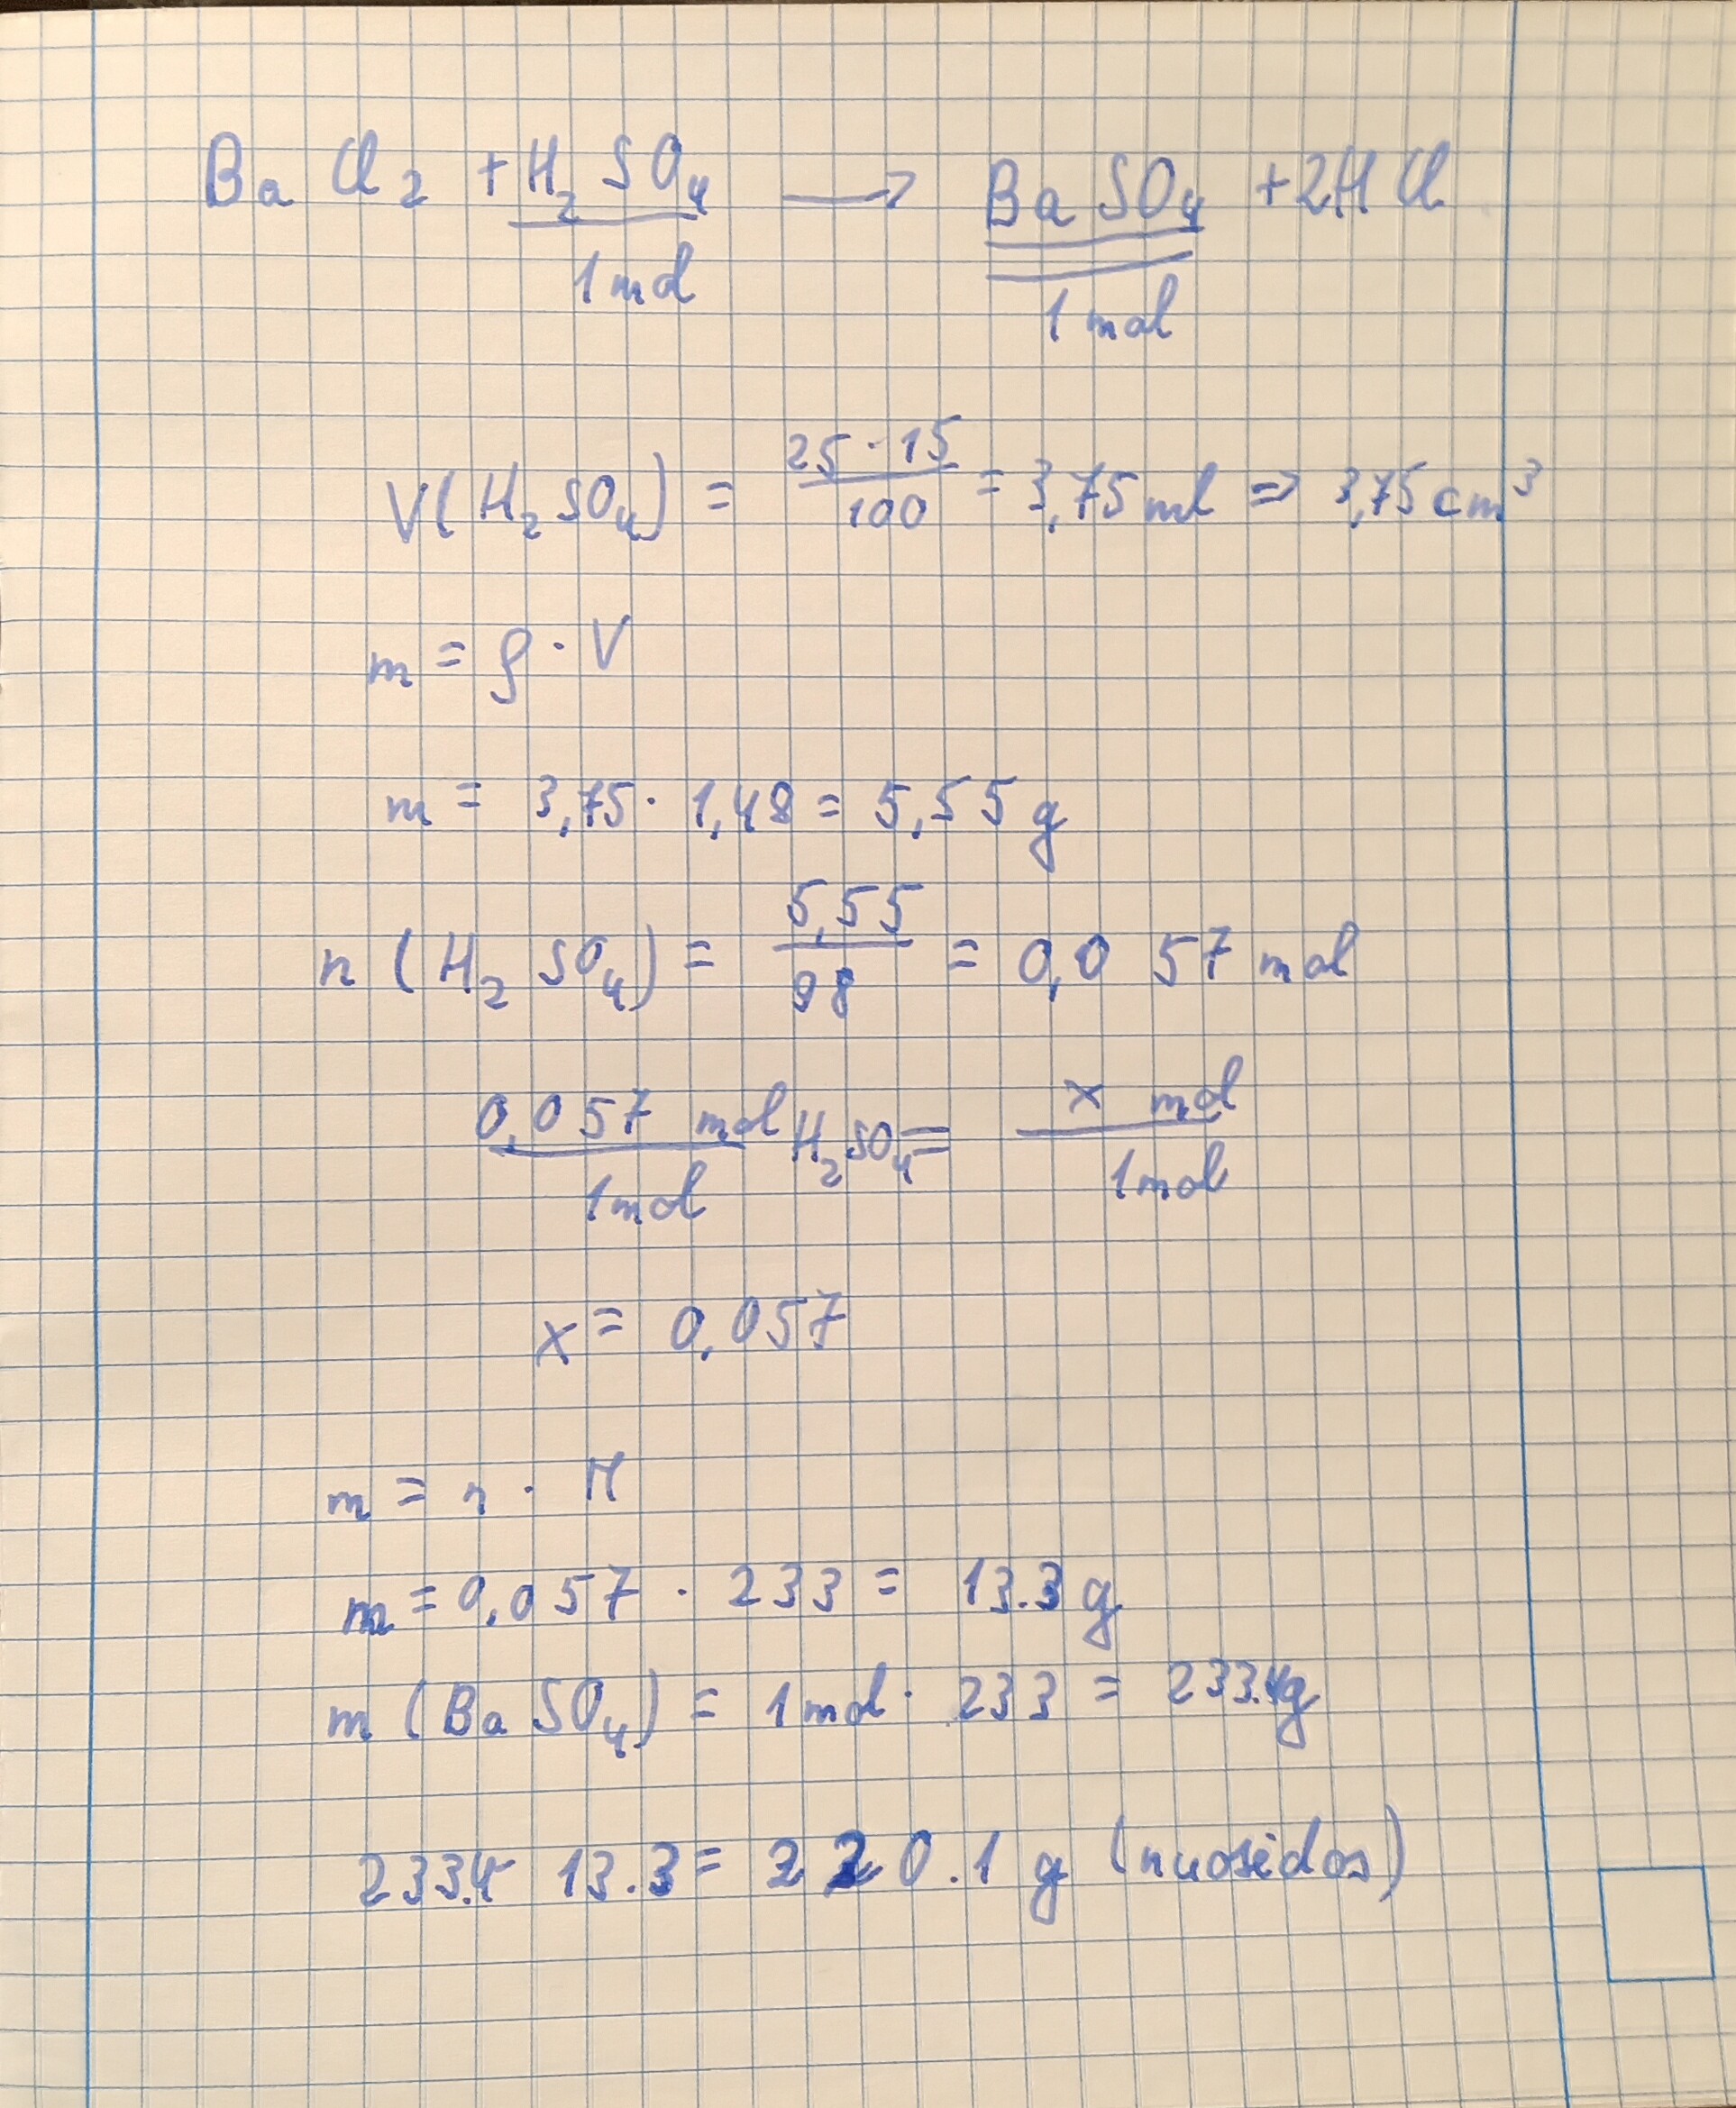 BaCl₂ + H₂SO₄ → BaSO₄ + 2HCl
1 mol 1 mol
V(H₂SO₄) = 25 · 15 / 100 = 3,75 ml ⇒ 3,75 cm³
m = ρ · V
m = 3,75 · 1,48 = 5,55 g
n (H₂SO₄) = 5,55 / 98 = 0,057 mol
0,057 mol / 1 mol H₂SO₄ = x mol / 1 mol
x = 0,057
m = n · M
m = 0,057 · 233 = 13.3 g
m (BaSO₄) = 1 mol · 233 = 233.4g
233.4 - 13.3 = 220.1 g (nuosėdos)